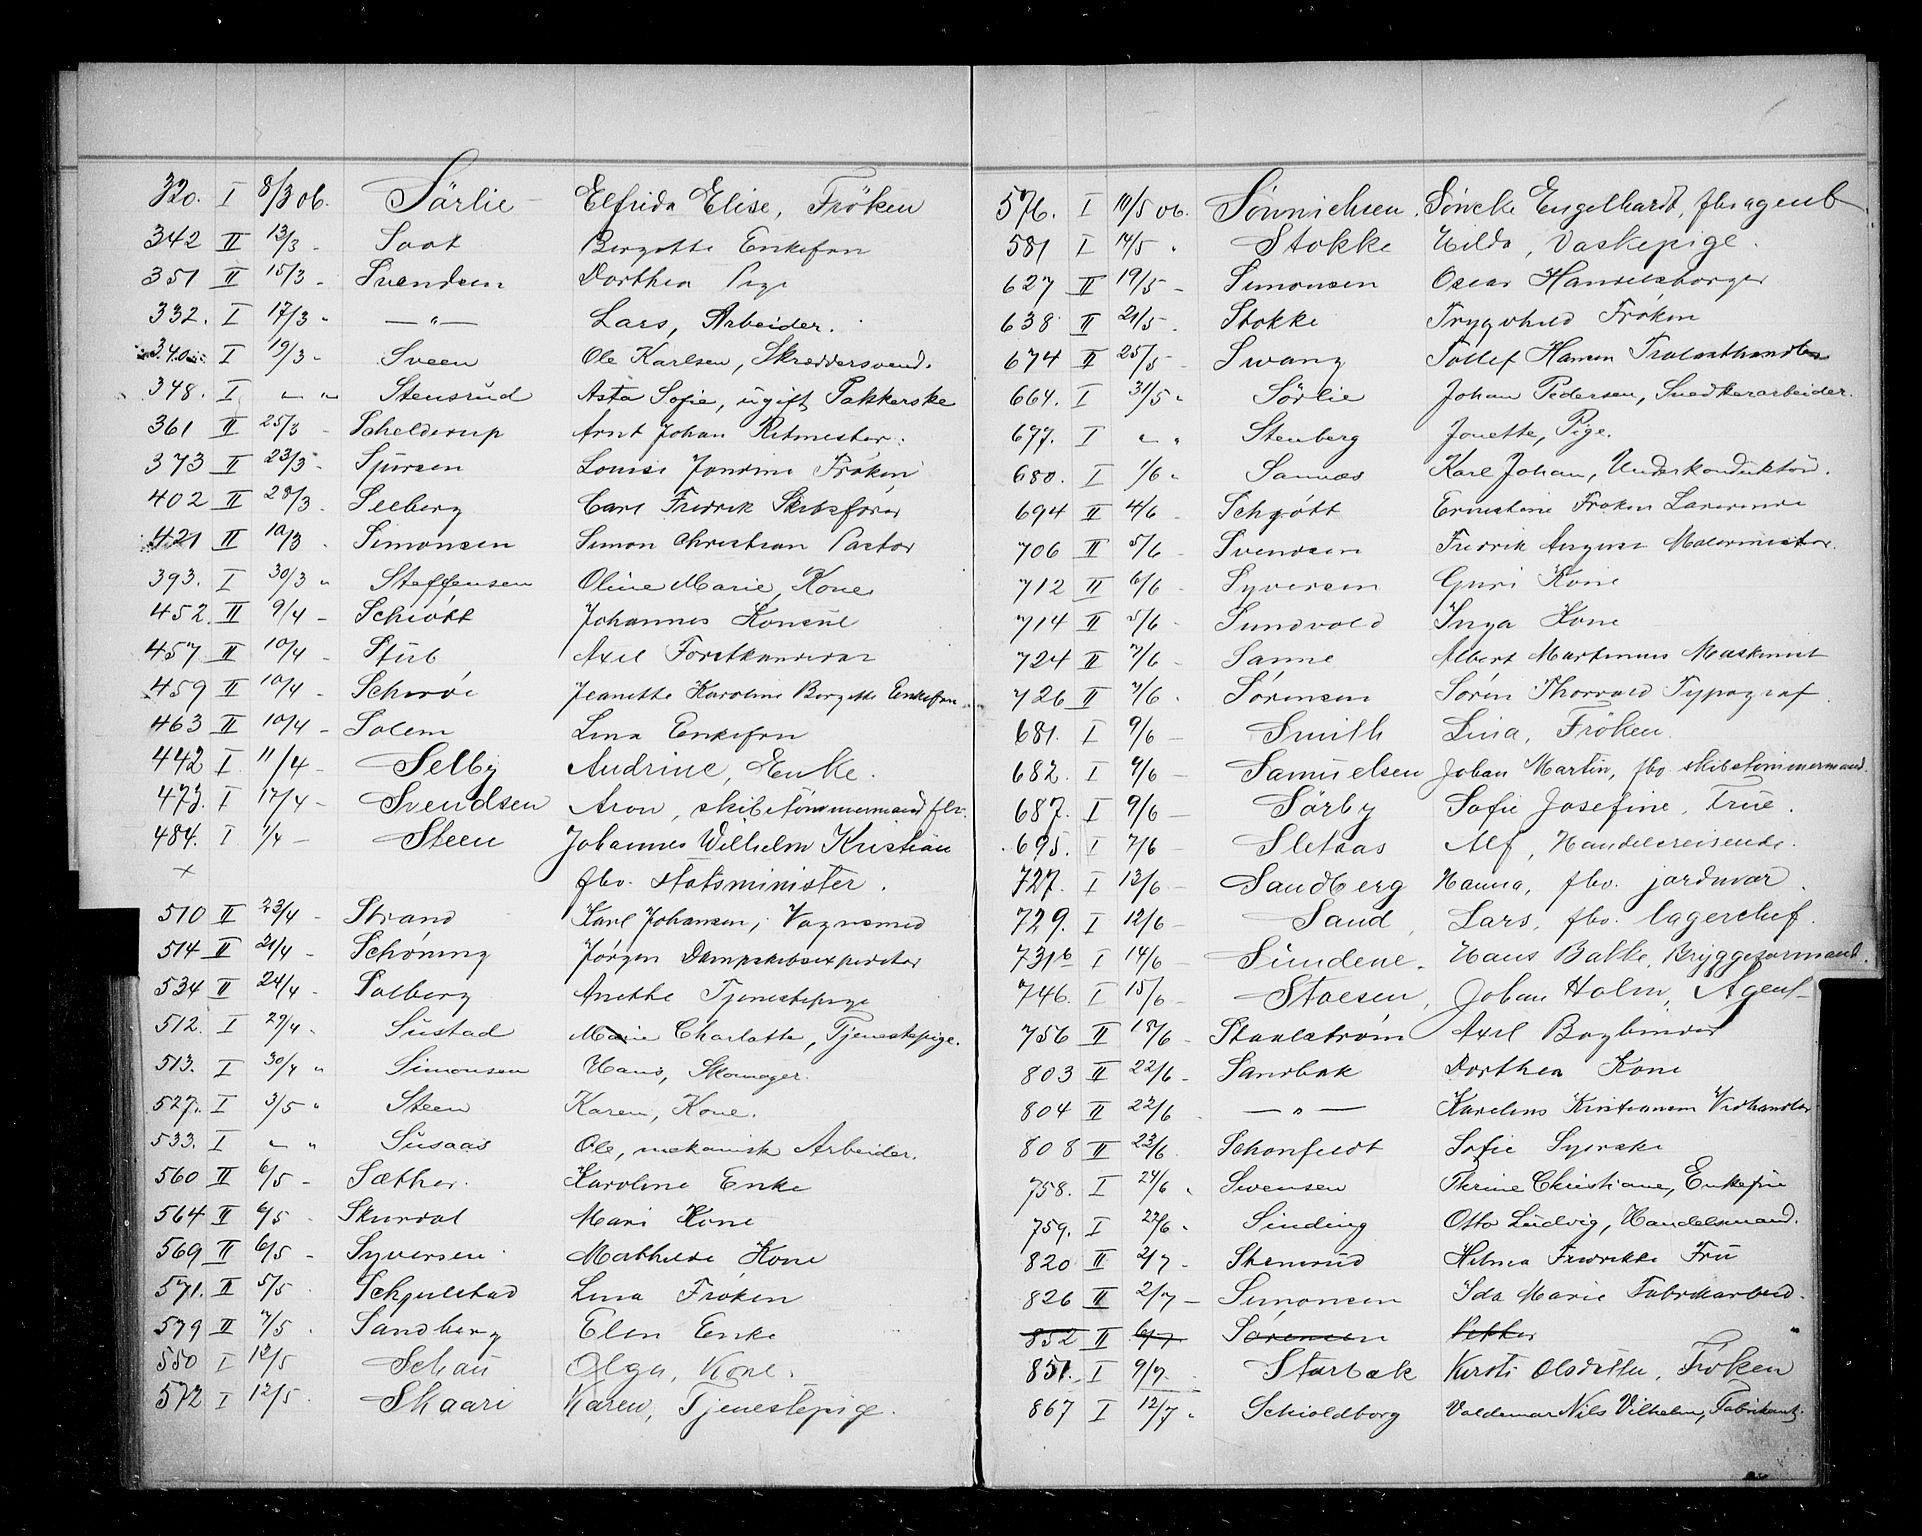 320. I 8/3 06. Sørlie Elfrida Elise, Frøken
342 II 13/3 - Saat Bergette Enkefru
351 II 15/3 - Svendsen Dorthea Pige
332. I 17/3 " —"— Lars, Arbeider.
340 I 19/3 - Sveen Ole Karlsen, Skræddersvend.
348. I " " Stensrud Asta Sofie, ugift Pakkerske
361 II 25/3 - Schelderup Arnt Johan Ritmester.
373 II 23/3 - Sjursen Louise Jondine Frøken
402 II 28/3 - Seeberg Carl Fredrik Skibsfører
421 II 10/3 - Simonsen Simon Christian Pastor
393. I 30/3 " Steffensen Oline Marie, Kone
452. II 9/4 - Schiøtt Johannes Konsul
457 II 10/4 - Stub Axel Forstkandidat
459 II 10/4 - Jeanette Karoline Bergette Enkefru
463 II 10/4 - Solem Lina Enkefru
442 I 11/4 - Selby Andrine, Enke.
473. I 17/4 - Svendsen Aron, skibstømmermand fhv.
484. I 1/4 - Steen Johannes Wilhelm Kristian
x fhv. statsminister.
510 II 23/4 - Strand Karl Johansen, Vognsmed
514 II 21/4 - Schøning Jørgen Dampskibsexpeditør
534 II 24/4 - Solberg Anethe Tjenestepige
512. I 29/4 " Sustad Marie Charlotte, Tjenestepige.
513. I 30/4 " Simonsen Hans, Skomager.
527. I 3/5 " Steen Karen, Kone.
533. I " " Susaas Ole, mekanisk Arbeider.
560 II 6/5 - Sæther. Karoline Enke
564 II 6/5 - Skurdal Mari Kone
569 II 6/5 - Syversen Mathilde Kone
571. II 5/5 - Schjelstad Lina Frøken
579 II 7/5 - Sandberg Elen Enke
550 I 12/5 Schau Olga, Kone.
572 I 12/5. Skaari Karen, Tjenestepige.
576. I 10/5 06. Sønnichsen. Søncke Engelhardt, fhv agent
581 I 14/5 " Stokke Hilda, Vaskepige.
627 II 19/5 - Simonsen Oscar Handelsborger
638 II 21/5 - Stokke Trygvhild Frøken
674 II 25/5 - Swang Tollef Hansen Trælasthandler
664. I 31/5 " Sørlie Johan Pedersen, Snedkerarbeider.
677. I " " Stenberg Jonette, Pige.
680. I 1/6 " Sannæs Karl Johan, Underkonduktør.
694 II 4/6 - Schjøtt Ernestine Frøken Lærerinde
706 II 5/6 - Svendsen Fredrik August Malermester.
712 II 6/6 - Syversen Guri Kone
714 II 5/6 - Sundvold Inga Kone
724 II 7/6 - Sanne Albert Martinius Maskinist
726 II 7/6 - Sørensen Søren Thorvald Typograf
681. I 9/6 - Smith Lina, Frøken.
682. I 9/6 - Samuelsen Johan Martin, fhv. skibstømmermand.
687. I 9/6 - Sørby Sofie Josefine, Frue.
695. I 7/6 - Sletaas Alf, Handelsreisende.
727. I 13/6 - Sandberg Hanna, fhv. jordmor.
729. I 12/6 - Sand, Lars, fhv. lagerchef.
731b I 14/6 - Sundene. Hans Balke, Bryggeformand.
746. I 15/6 - Staesen, Johan Holm, Agent
756 II 18/6 - Staalstrøm Axel Bogbinder
803 II 22/6 - Sandbak Dorthea Kone
804 II 22/6 —"— Karelius Kristiansen Vedhandler
808 II 23/6. Schønfeldt Sofie Syerske
758. I 24/6 " Svensen Thrine Christiane, Enkefru
759. I 27/6 " Sinding Otto Ludvig, Handelsmand.
820 II 2/7 - Stensrud Hilma Fredrikke Fru
826 II 2/7 - Simonsen Ida Marie Fabrikarbeid.
852 II 6/7 Sørensen Petter
851. I 9/7. Starbak Kirsti Olsdatter, Frøken
867 I 12/7 " Schioldborg Valdemar Nils Vilhelm, Fabrikant.